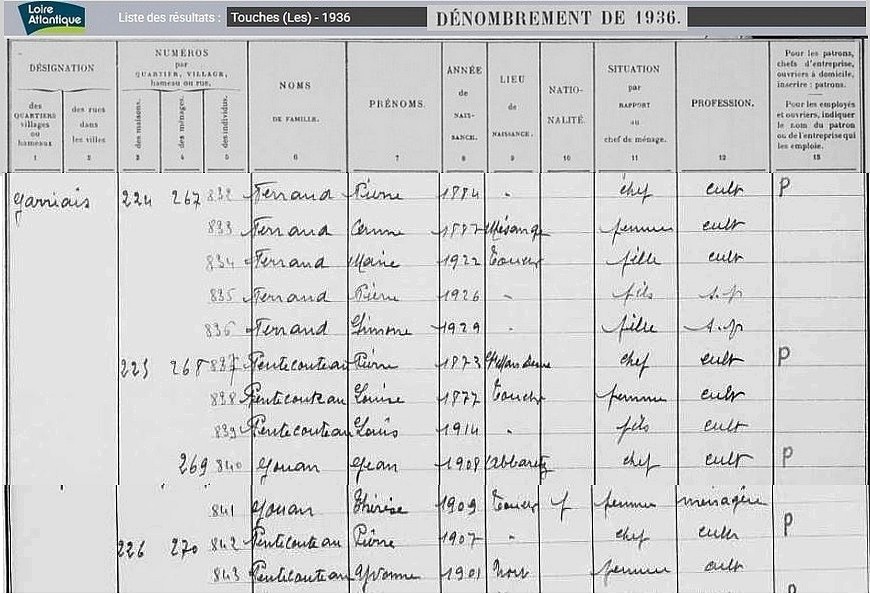 Loire
Atlantique
Liste des résultats : Touches (Les) - 1936
DÉNOMBREMENT DE 1936.
DÉSIGNATION
des QUARTIERS villages ou hameaux
1
des rues dans les villes
2
NUMÉROS
par QUARTIER, VILLAGE, hameau ou rue.
des maisons.
3
des ménages.
4
des individus.
5
NOMS
DE FAMILLE.
6
PRÉNOMS.
7
ANNÉE de NAISSANCE.
8
LIEU de NAISSANCE.
9
NATIONALITÉ.
10
SITUATION par RAPPORT au chef de ménage.
11
PROFESSION.
12
Pour les patrons, chefs d'entreprise, ouvriers à domicile, inscrire : patrons.
Pour les employés et ouvriers, indiquer le nom du patron ou de l'entreprise qui les emploie.
13
Garriais 224 267 832 Ferrand Pierre 1884 " chef cult P
833 Ferrand 1887 Mésange femme cult
834 Ferrand Marie 1922 Touches fille cult
835 Ferrand Pierre 1926 " fils s.p
836 Ferrand Simone 1929 " fille s.p
225 268 837 Pentecouteau Pierre 1873 chef cult P
838 Pentecouteau Louise 1877 Touches femme cult
839 Pentecouteau Louis 1914 " fils cult
269 840 Gouan Jean 1908 Abbaretz chef cult P
841 Gouan Thérèse 1909 Touches f femme ménagère
226 270 842 Pentecouteau Pierre 1907 " chef cult P
843 Pentecouteau Yvonne 1901 Nort femme cult